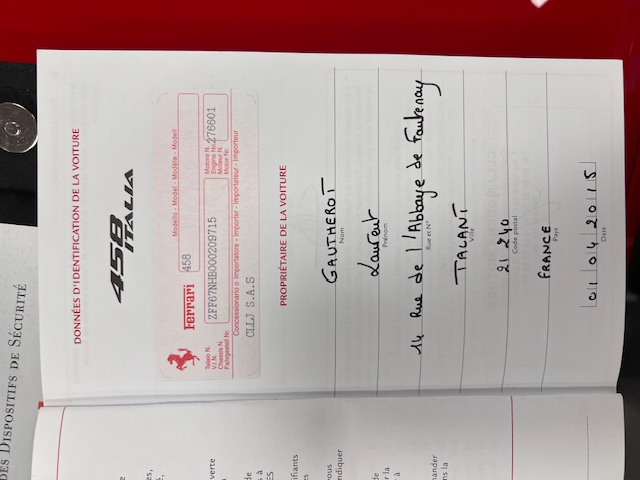 DONNÉES D'IDENTIFICATION DE LA VOITURE
458
ITALIA
Ferrari
Modello - Model - Modèle - Modell
458
Telaio N.
V.I.N.
Chassis N.
Fahrgestell Nr.
ZFF67NHB000209715
Motore N.
Engine No.
Moteur N.
Motor Nr.
276601
Concessionario o Importatore - Importer - Importateur - Importeur
CLLJ S.A.S
PROPRIÉTAIRE DE LA VOITURE
GAUTHEROT
Nom
Laurent
Prénom
14 Rue de l'Abbaye de Fontenay
Rue et N°
TALANT
Ville
21240
Code postal
FRANCE
Pays
01 04 2015
Date
DES DISPOSITIFS DE SÉCURITÉ
verte
ifiants
vous
indiquer
de
r la
à
mander
ns la